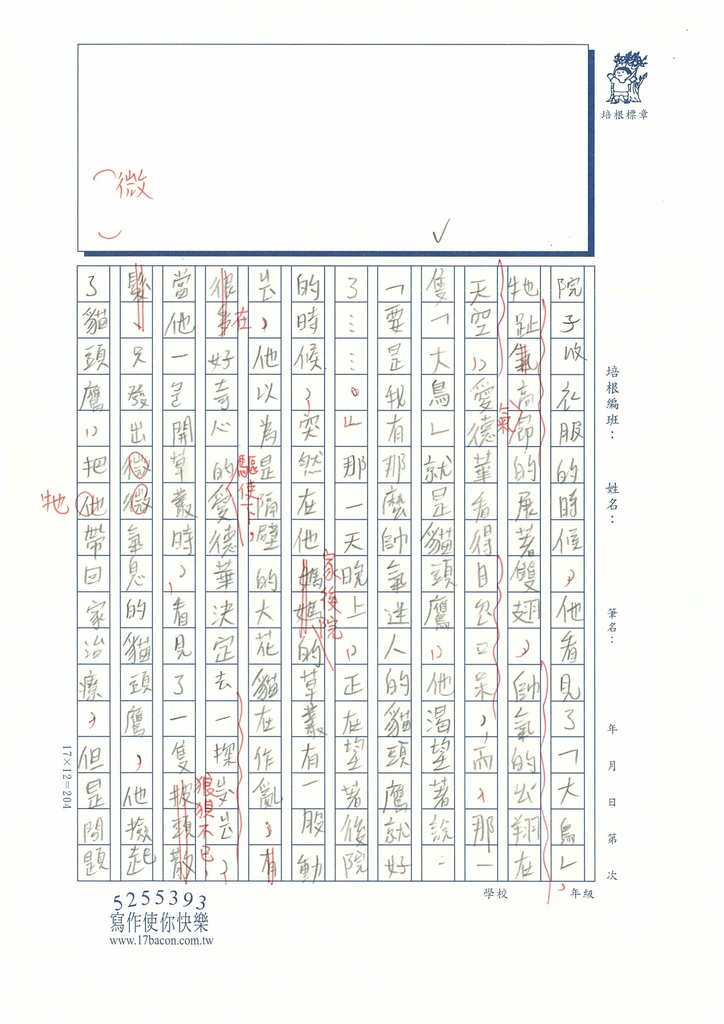 培根標章
培根編班：
姓名：
筆名：
年 月 日 第 次
學校
年級
院子收衣服的時候，他看見了「大鳥」，
牠趾氣高昂的展著雙翅，帥氣的翱翔在
天空，愛德華看得目瞪口呆，而，那一
隻「大鳥」就是貓頭鷹，他渴望著說：
「要是我有那麼帥氣迷人的貓頭鷹就好
了……。」那一天晚上，正在望著後院
的時候，突然在他媽媽的草叢有一股動
靜，他以為是隔壁的大花貓在作亂，有
很多好奇心的愛德華決定去一探究竟，
當他一走開草叢時，看見了一隻披頭散
髮、只發出微微氣息的貓頭鷹，他撿起
了貓頭鷹，把他帶回家治療，但是問題
氣
家後院
在
驅使下，
狼狽不已，
（微
）
牠
17×12=204
5255393
寫作使你快樂
www.17bacon.com.tw